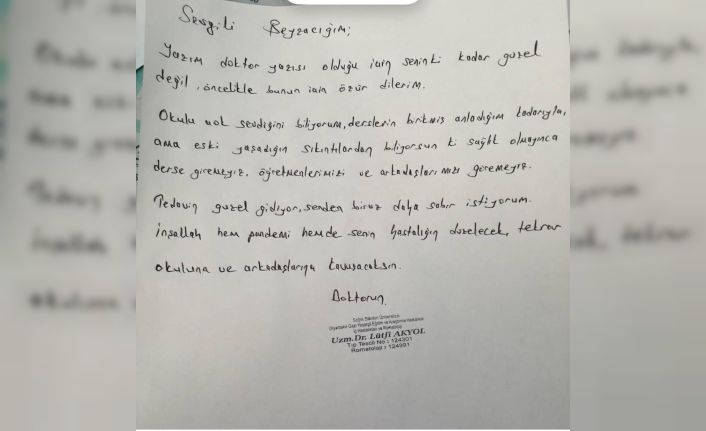 Sevgili Beyzacığım;
Yazım doktor yazısı olduğu için seninki kadar güzel
değil, öncelikle bunun için özür dilerim.
Okulu çok sevdiğini biliyorum, derslerin birikmiş anladığım kadarıyla,
ama eski yaşadığın sıkıntılardan biliyorsun ki sağlık olmayınca
derse giremeyiz, öğretmenlerimizi ve arkadaşlarımızı göremeyiz.
Tedavin güzel gidiyor, senden biraz daha sabır istiyorum.
İnşallah hem pandemi hemde senin hastalığın düzelecek, tekrar
okuluna ve arkadaşlarına kavuşacaksın.
Doktorun
Sağlık Bilimleri Üniversitesi
Diyarbakır Gazi Yaşargil Eğitim ve Araştırma Hastanesi
İç Hastalıkları ve Romatoloji
Uzm.Dr. Lütfi AKYOL
Tıp Tescil No : 124301
Romatoloji : 124901